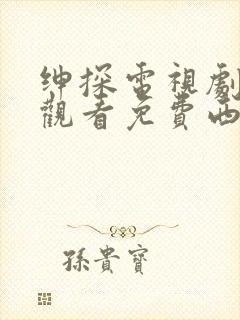 紳探電視劇
觀看免費西
孫貴寶